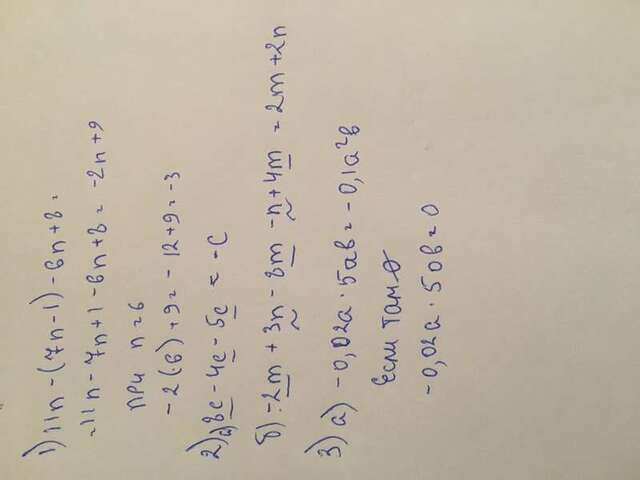 1) 11n-(7n-1)-6n+8=
=11n-7n+1-6n+8=-2n+9
при n=6
-2(·6)+9=-12+9=-3
2) а) 8c-4c-5c=-c
б) -2m+3n-8m-n+4m=2m+2n
3) а) -0,02a·5ab=-0,1a²b
Если там 0
-0,02a·50b=0